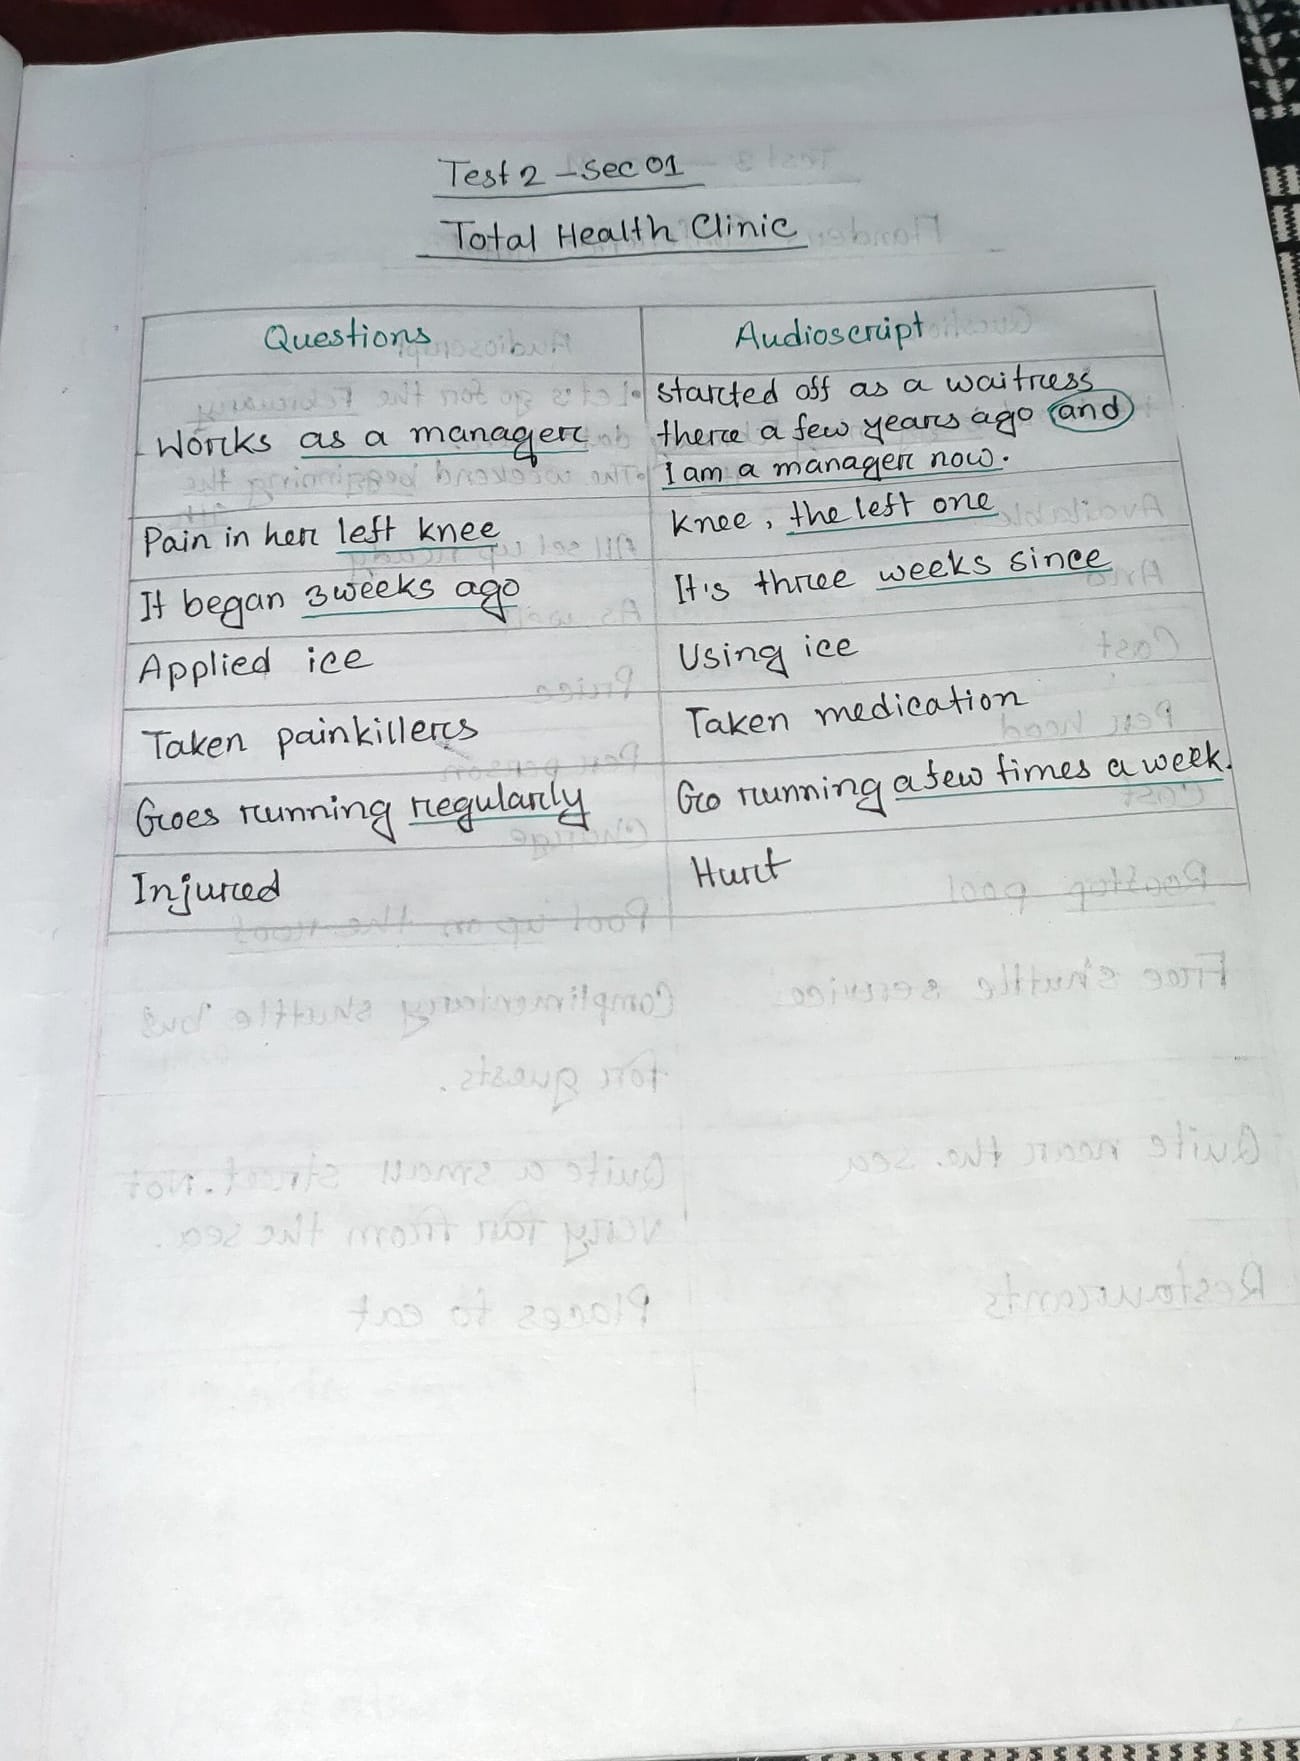 Test 2 - Sec 01
Total Health Clinic
Questions
Audioscript
Works as a manager
started off as a waitress
there a few years ago and
I am a manager now.
Pain in her left knee
Knee, the left one
It began 3 weeks ago
It's three weeks since
Applied ice
Using ice
Taken painkillers
Taken medication
Goes running regularly
Go running a few times a week.
Injured
Hurt